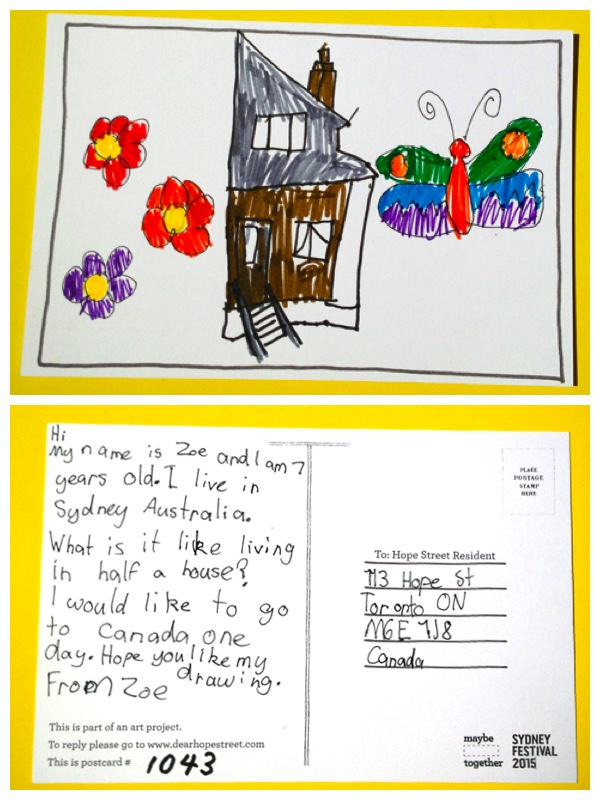 Hi
My name is Zoe and I am 7
years old. I live in
Sydney Australia.
What is it like living
in half a house?
I would like to go
to Canada one
day. Hope you like my
drawing.
From Zoe
This is part of an art project.
To reply please go to www.dearhopestreet.com
This is postcard # 1043
PLACE
POSTAGE
STAMP
HERE
To: Hope Street Resident
113 Hope St
Toronto ON
M6E 1J8
Canada
maybe
together
SYDNEY
FESTIVAL
2015